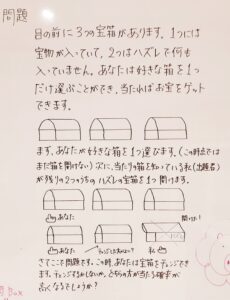 問題
目の前に3つの宝箱があります。1つには
宝物が入っていて、2つはハズレで何も
入っていません。あなたは好きな箱を1つ
だけ選ぶことができ、当たればお宝をゲット
できます。
まず、あなたが好きな箱を1つ選びます。(この時点では
まだ箱を開けない)次に、当たりの箱を知っている私(出題者)
が残りの2つのうちのハズレの宝箱を1つ開けます。
あなた
私
さてここで問題です。この時、あなたは宝箱をチェンジでき
ます。チェンジするかしないか、どちらの方が当たる確率が
高くなるでしょうか?
Box